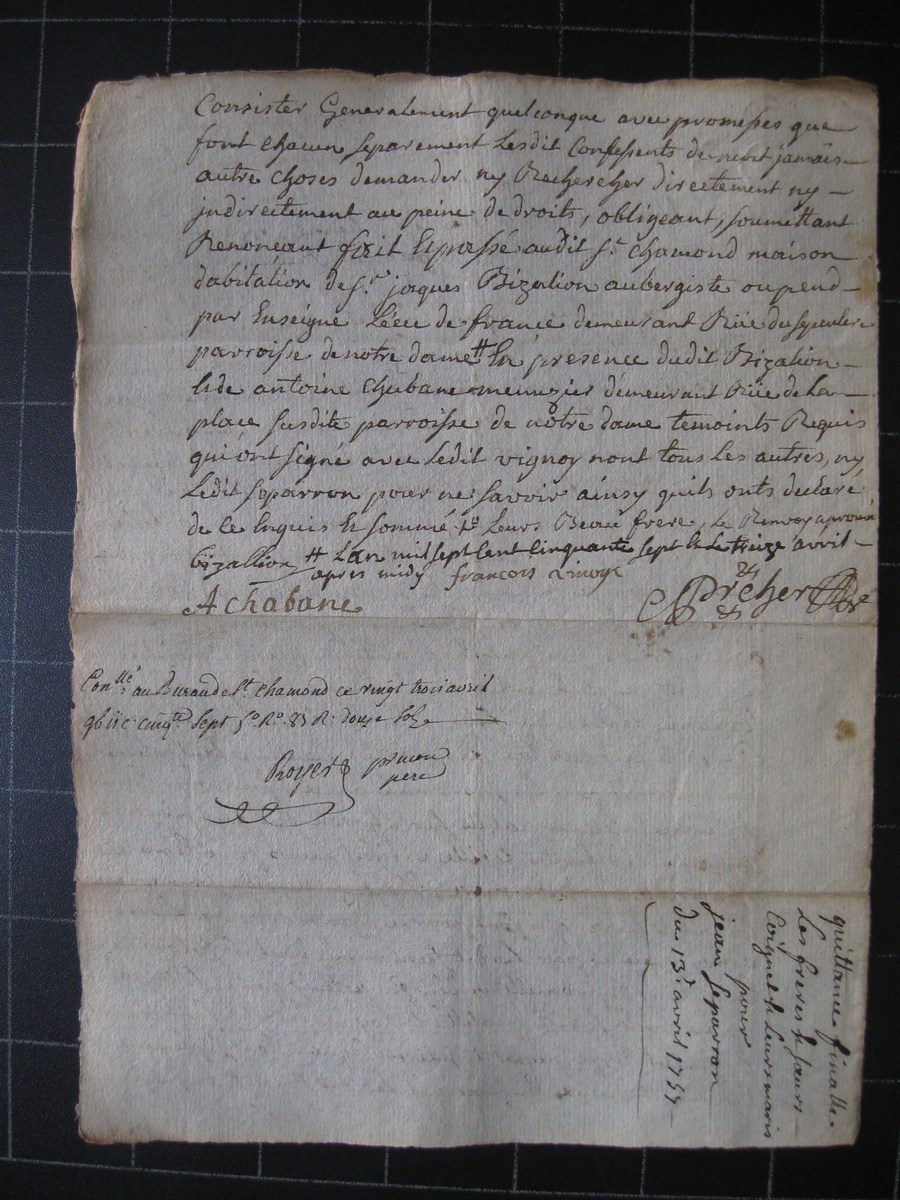 Consister Generalement quelconque avec promesses que
font chacun separement Lesdit Confessents de neut jamais
autre choses demander ny Rechercher directement ny
judirectement au peine de droits, obligeant, soumettant
Renoncant fait Et passé audit st. chamond maison
dabitation de sr. jaques Bizalion aubergiste ou pend
par Enseigne L'écu de france demeurant Rüe du sepulcre
parroisse de notre dame # En presence dudit Bizalion
& de antoine chabane menuzier démeurant Rüe de La
place susdite parroisse de notre dame temoints Requis
qui ont signé avec Ledit vignoy nont tous les autres, ny
Ledit Separron pour ne savoir ainsy quils onts declaré
de ce Enquis Et sommé Leurs Beau frere, le Renvoy aprouvé
bizallion # Lan mil sept cent cinquante sept & Le treize avril
apres midy françois
A chabane
Conllé. au Bureau de st. chamond ce vingt trois avril
cinqte. sept fo. Ro. 83 R. douze sols
Royer
quittance finalle
Les freres & sœurs
& Leurs maris
pour
jean Separron
du 13e. avril 1757